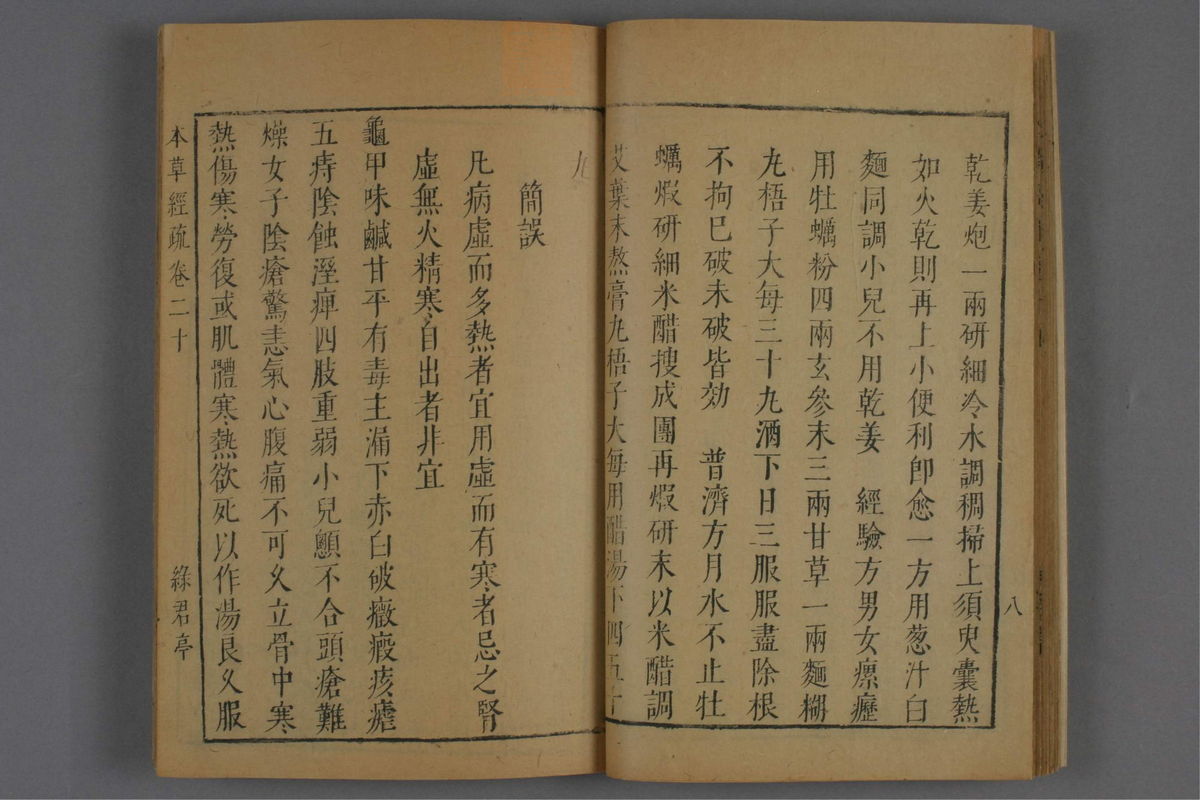 八
乾姜炮一兩研細冷水調稠掃上須臾囊熱
如火乾則再上小便利卽愈一方用葱汁白
麵同調小兒不用乾姜　經驗方男女瘰癧
用牡蠣粉四兩玄參末三兩甘草一兩麵糊
丸梧子大每三十丸酒下日三服服盡除根
不拘巳破未破皆効　普濟方月水不止牡
蠣煆研細米醋搜成團再煆研末以米醋調
艾葉末熬膏丸梧子大每用醋湯下四五十
丸
簡誤
凡病虛而多熱者宜用虛而有寒者忌之腎
虛無火精寒自出者非宜
龜甲味鹹甘平有毒主漏下赤白破癥瘕痎瘧
五痔陰蝕溼痺四肢重弱小兒顖不合頭瘡難
燥女子陰瘡驚恚氣心腹痛不可久立骨中寒
熱傷寒勞復或肌體寒熱欲死以作湯良久服
本草經疏卷二十
綠君亭